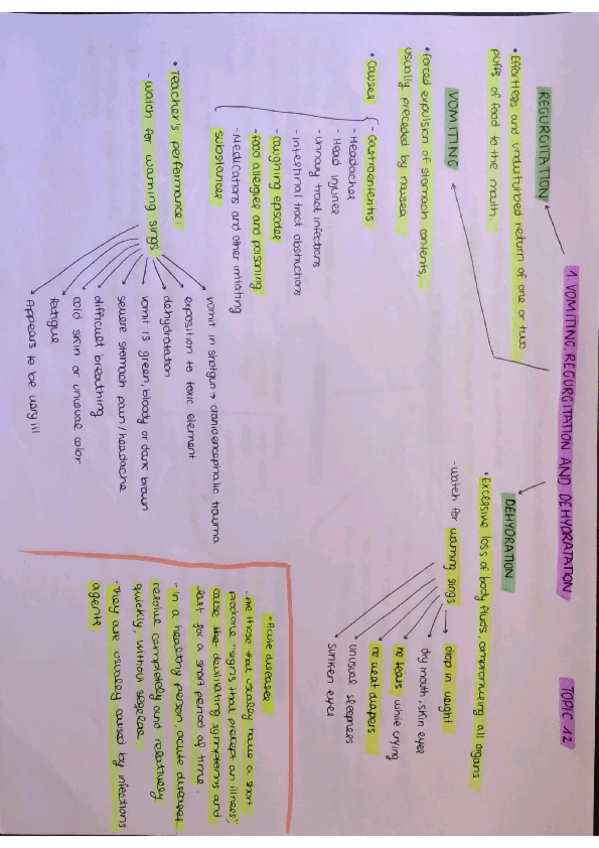 TOPIC 12
1. VOMITING, REGURGITATION AND DEHYDRATATION
REGURGITATION
• Effortless and undisturbed return of one or two
puffs of food to the mouth.
VOMITING
• forced expulsion of stomach contents,
usually preceded by nausea
• Causes
- Gastroenteritis
- Headaches
- Head injuries
- Urinary tract infections
- Intestinal tract obstructions
- Caughing episodes
- Food allergies and poisoning
- Medications and other irritating
substances
• Teacher's performance:
- watch for warning sings
vomit in shotgun → cranioencephalic trauma
exposition to toxic element
dehydratation
vomit is green, bloody or dark brown
severe stomach pain/headache
difficult breathing
cold skin or unusual color
fatigue
Appears to be very ill
DEHYDRATION
• Excessive loss of body fluids, compromising all organs
- watch for warning sings
drop in weight
dry mouth, skin, eyes
no tears while crying
no wet diapers
unusual sleepness
sunken eyes
• Acute diseases
- Are those that usually have a short
prodrome "signs that precept an illness",
cause the debilitating symptoms and
last for a short period of time.
- In a healthy person, acute diseases
resolve completely and relatively
quickly, without sequelae.
- They are usually caused by infections
agents.